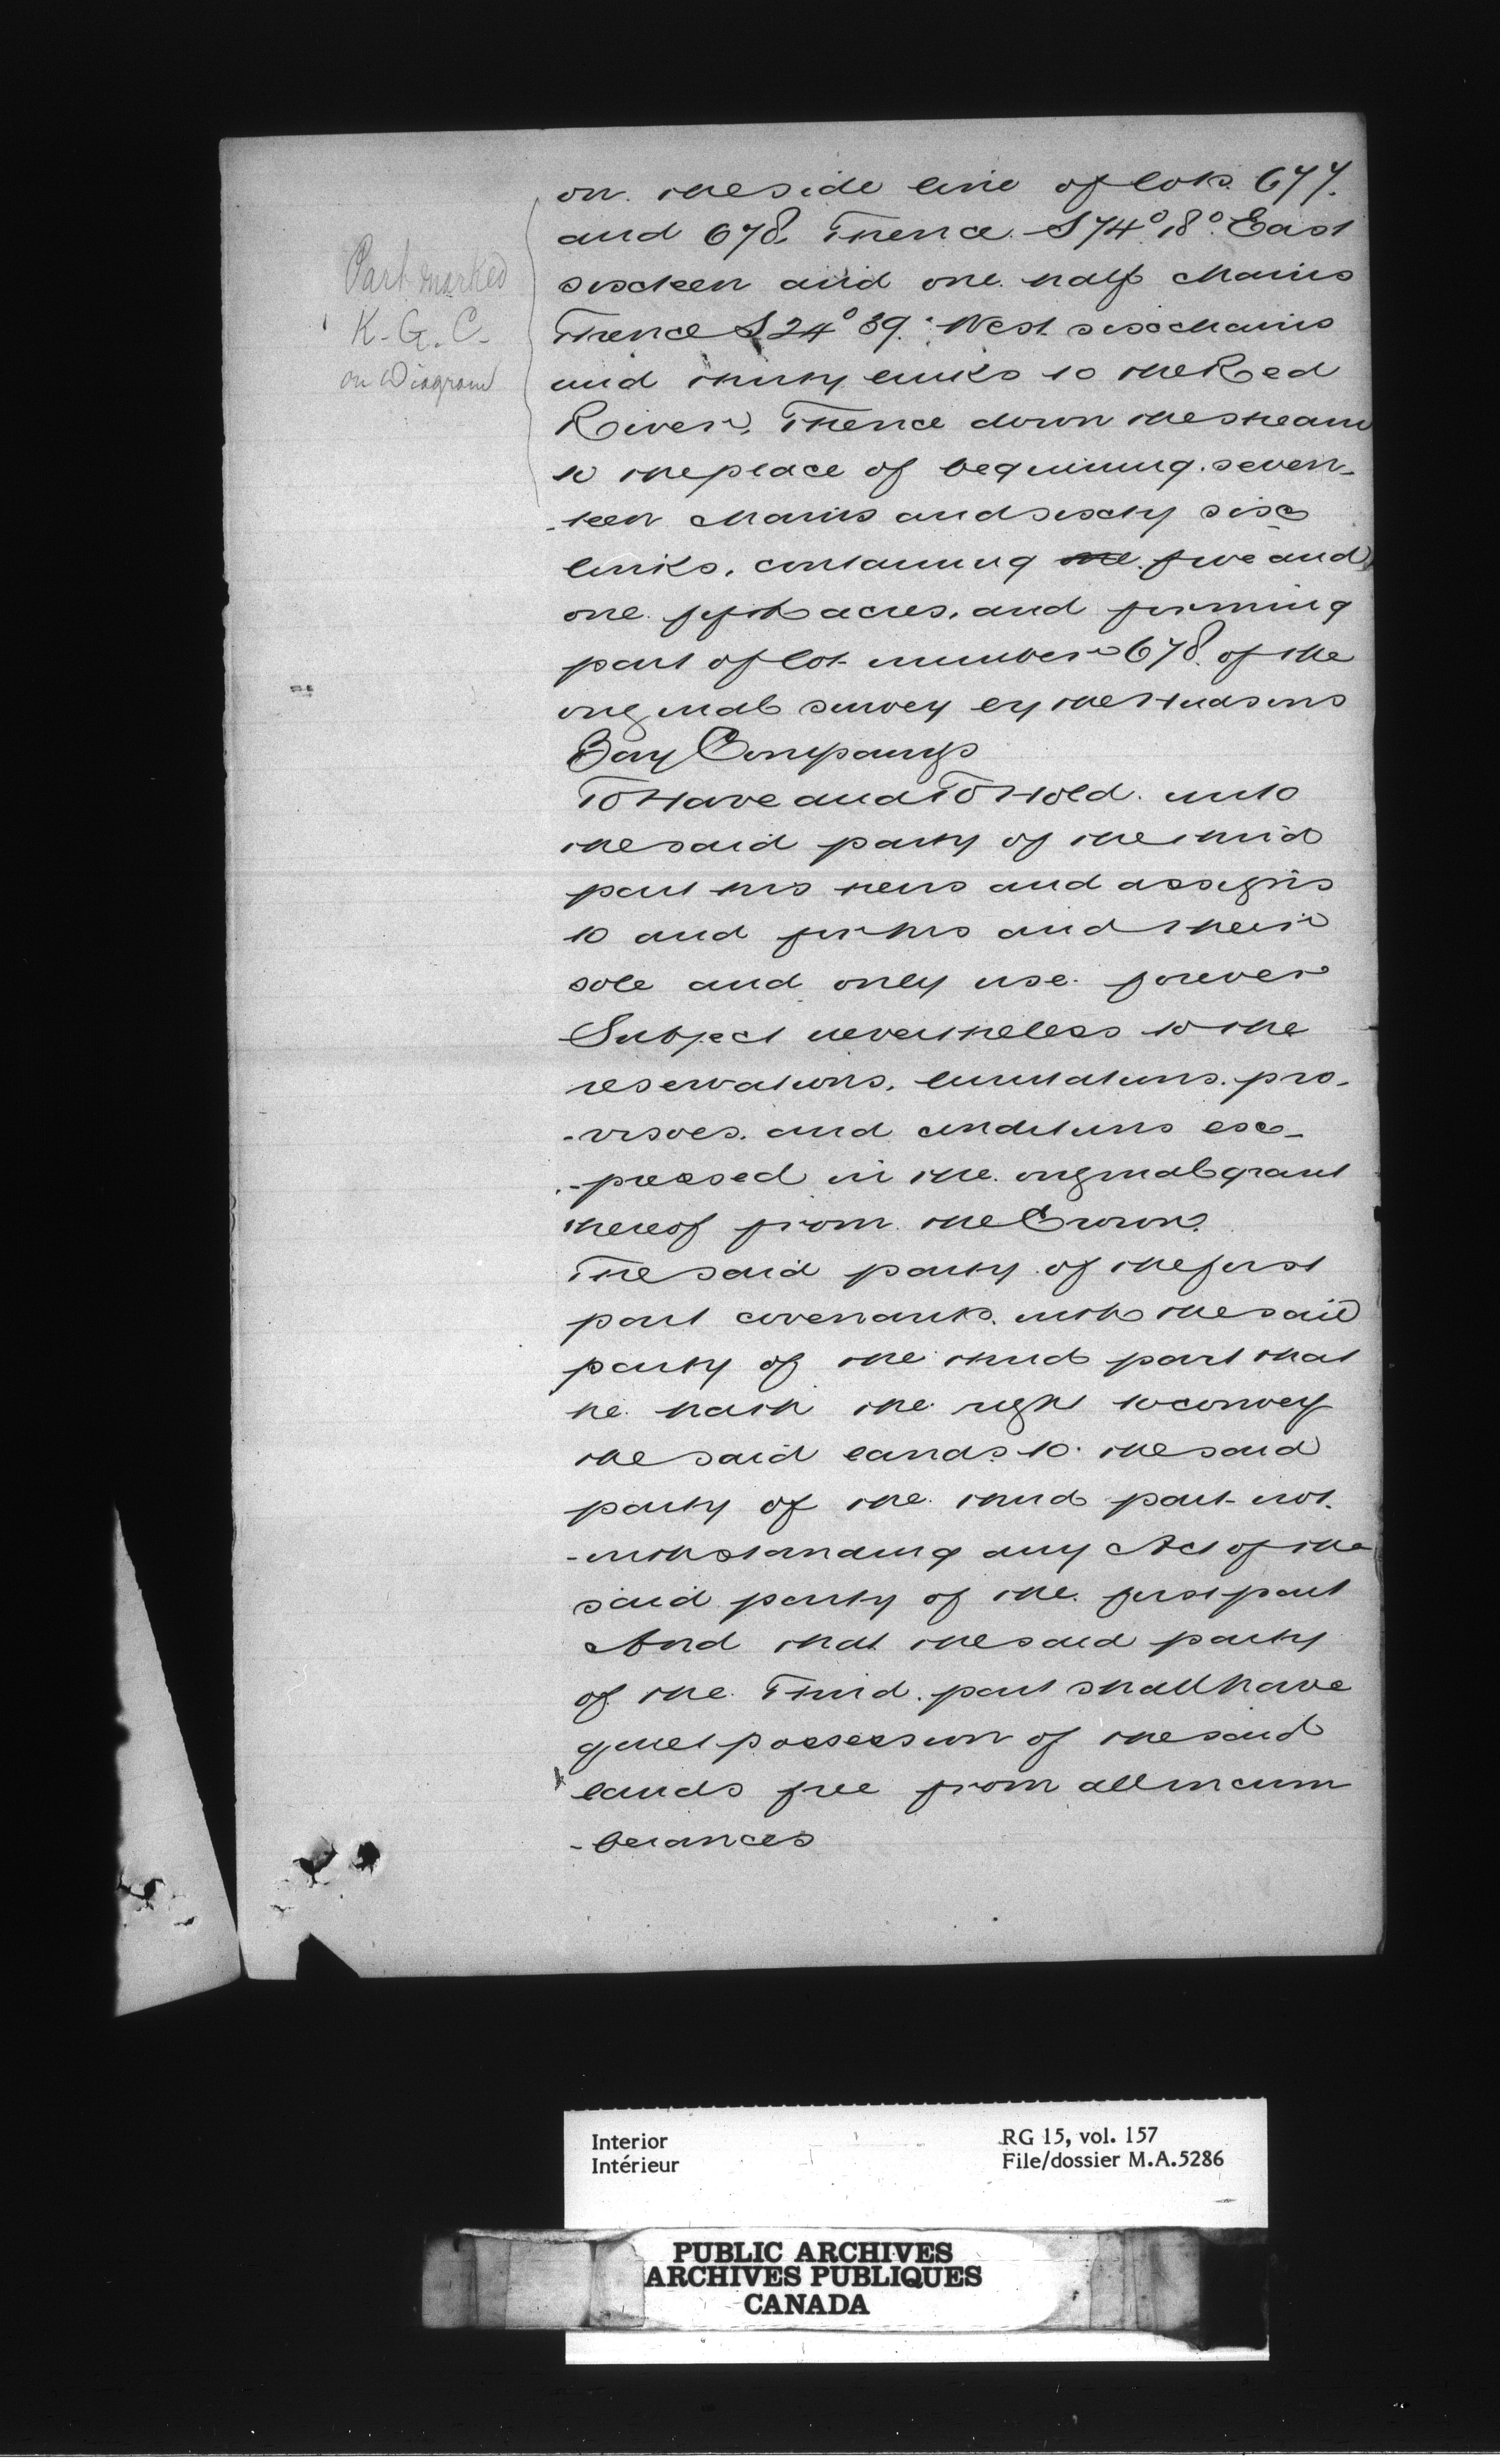 Part marked
K. G. C.
on Diagram
on the side line of lots 677.
and 678. Thence S 74° 18° East
sixteen and one half chains
Thence S 24° 39' West six chains
and thirty links to the Red
River, Thence down the stream
to the place of beginning. seven-
-teen chains and sixty six
links, containing five and
one fifth acres, and forming
part of lot number 678. of the
original survey by the Hudsons
Bay Company
To Have and To Hold. unto
the said party of the third
part his heirs and assigns
to and for his and their
sole and only use forever
Subject nevertheless to the
reservations, limitations, pro-
-visoes, and conditions ex-
-pressed in the original grant
thereof from the Crown.
The said party of the first
part covenants with the said
party of the third part that
he hath the right to convey
the said lands to the said
party of the third part not-
-withstanding any Act of the
said party of the first part
And that the said party
of the Third part shall have
quiet possession of the said
lands free from all incum
-berances
Interior
Intérieur
RG 15, vol. 157
File/dossier M.A.5286
PUBLIC ARCHIVES
ARCHIVES PUBLIQUES
CANADA